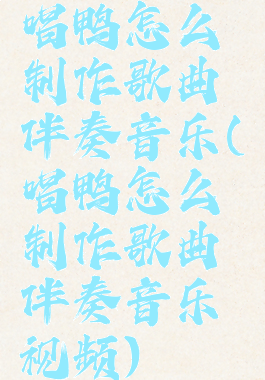 唱鸭怎么
制作歌曲
伴奏音乐(
唱鸭怎么
制作歌曲
伴奏音乐
视频)